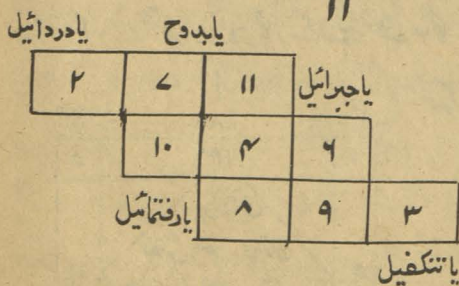 ۱۱
یادردائیل یابدوح
۲ ۷ ۱۱ یاجبرائیل
۱۰ ۴ ۶
یارفتمائیل ۸ ۹ ۳
یاتنکفیل